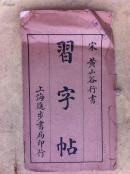 宋黃山谷行書
習字帖
上海進步書局印行